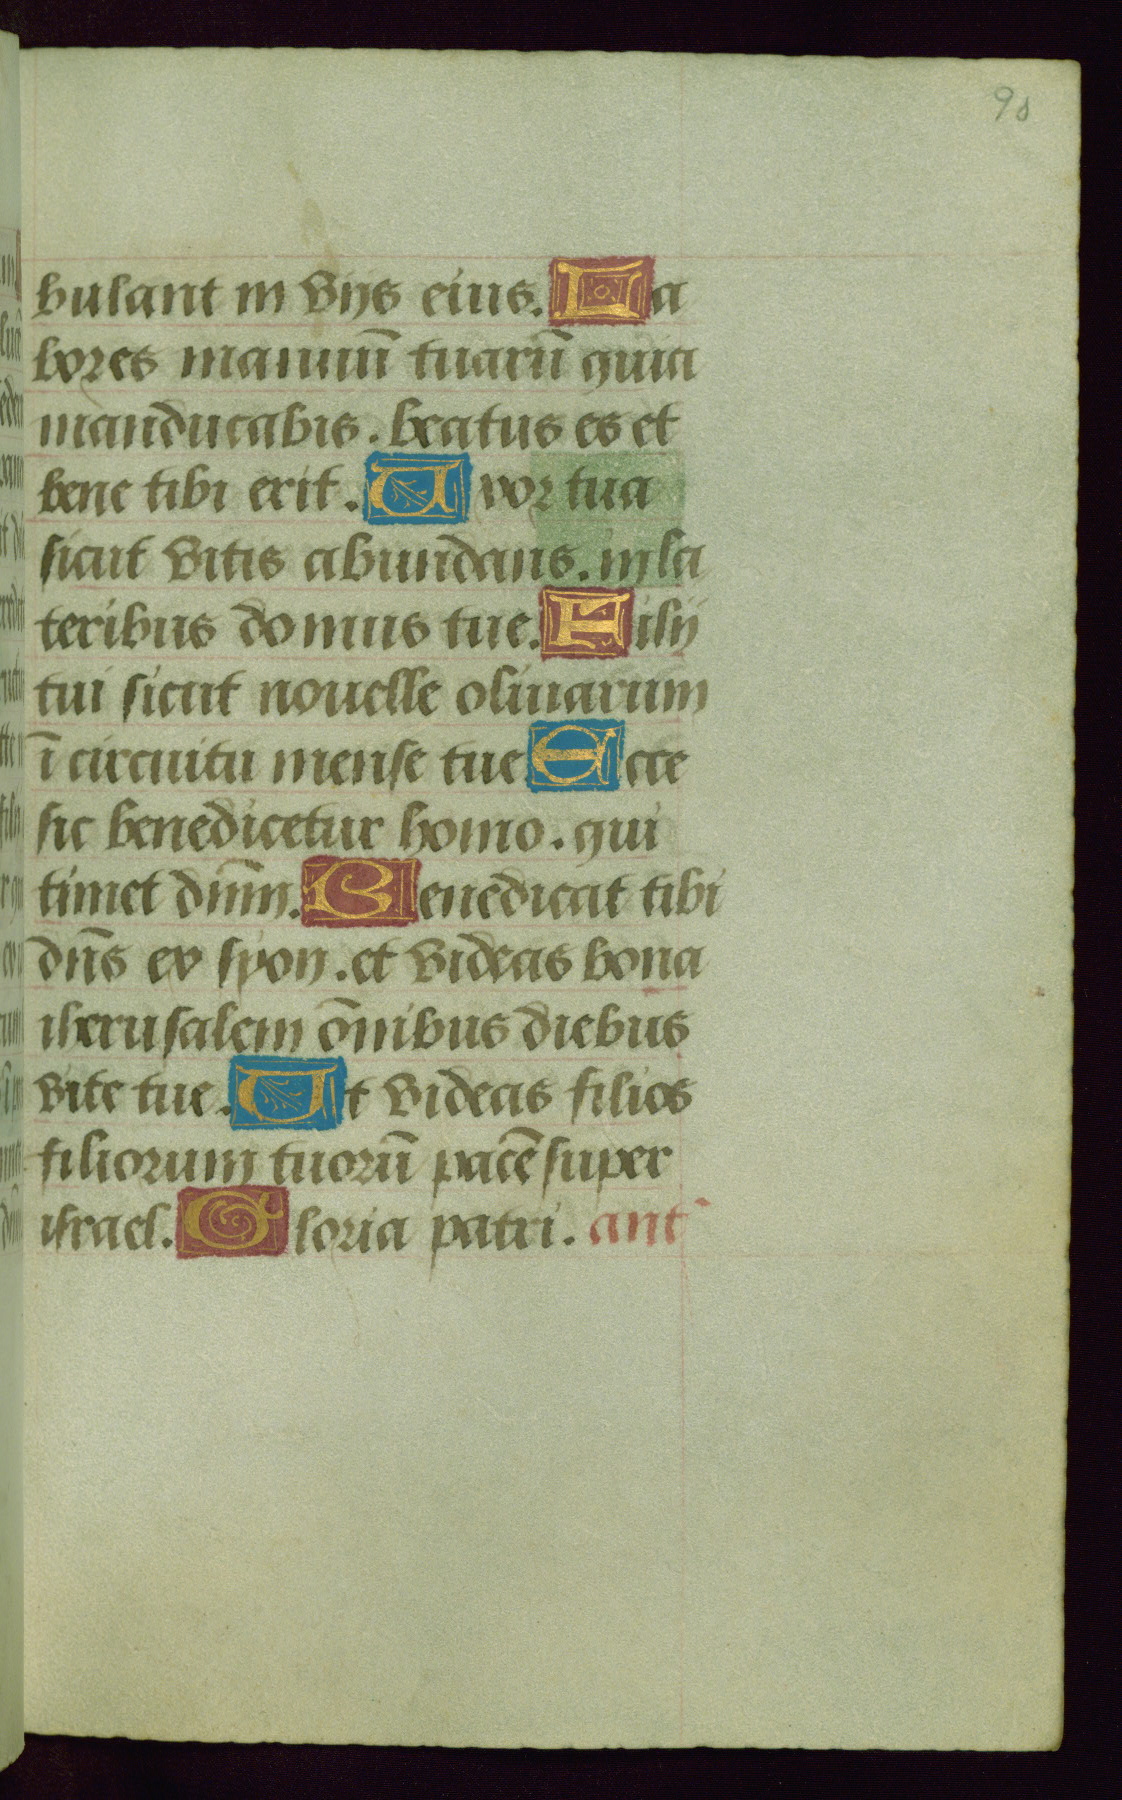 90
bulant in viis eius. La
bores manuū tuarū quia
manducabis. beatus es et
bene tibi erit. Uxor tua
sicut vitis abundans. in la
teribus domus tue. Filij
tui sicut nouelle oliuarum
ī circuitu mense tue Ecce
sic benedicetur homo. qui
timet dn̄m. Benedicat tibi
dn̄s ex syon. et videas bona
iherusalem ōnibus diebus
vite tue. Ut videas filios
filiorum tuorū pacē super
israel. Gloria patri. ant